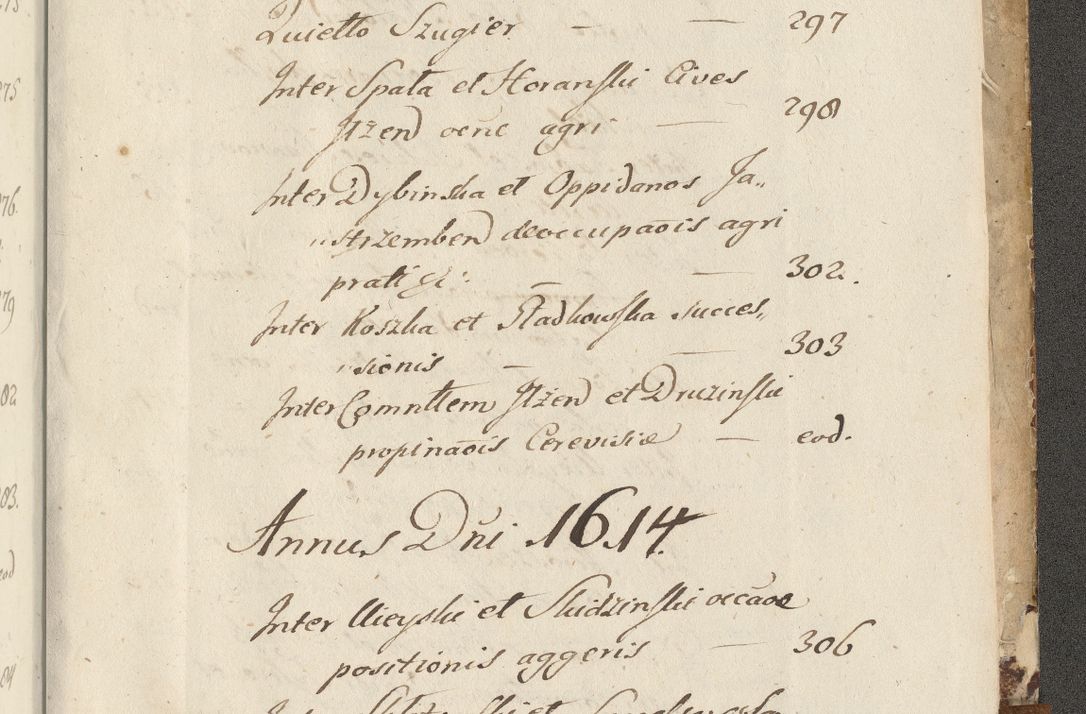 Quietto Szugier — — 297
Inter Spata et Horanski Cives
Itżen occne agri — 298
Inter Dybinska et Oppidanos Ja„
„strzemben deoccupaōis agri
prati &c: — — 302.
Inter Koszka et Sladkowska succes„
„sionis — — 303
Inter Comnttem Itżen et Druzinski
propinaōis Cerevisiæ — eod.
Annus Dn̄i 1614.
Inter Uieyski et Skidzinski occāōe
positionis aggeris — 306
275
276.
279
282
283.
eod